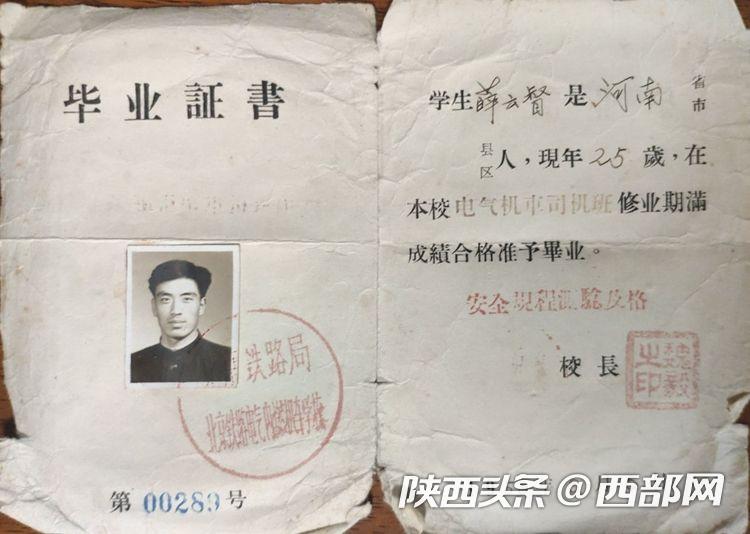 毕业証書
铁路局
第00289号
学生薛云督是河南省市
县区人,現年25歲,在
本校电气机車司机班修业期滿
成績合格准予畢业。
安全規程測驗及格
校長
之印
陕西头条@西部网